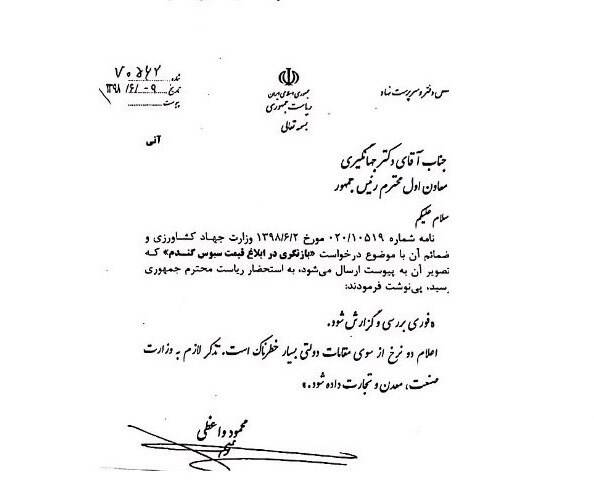 جمهوری اسلامی ایران
ریاست جمهوری
بسمه تعالی
شماره ۷۰۵۶۲
تاریخ ۱۳۹۸/۶/۰۹
پیوست
س دفتر و سرپرست نهاد
آنی
جناب آقای دکتر جهانگیری
معاون اول محترم رئیس جمهور
سلام علیکم
نامه شماره ۰۲۰/۱۰۵۱۹ مورخ ۱۳۹۸/۶/۲ وزارت جهاد کشاورزی و
ضمائم آن با موضوع درخواست «بازنگری در ابلاغ قیمت سبوس گندم» که
تصویر آن به پیوست ارسال می‌شود، به استحضار ریاست محترم جمهوری
رسید، پی‌نوشت فرمودند:
«فوری بررسی و گزارش شود.
اعلام دو نرخ از سوی مقامات دولتی بسیار خطرناک است. تذکر لازم به وزارت
صنعت، معدن و تجارت داده شود.»
محمود واعظی